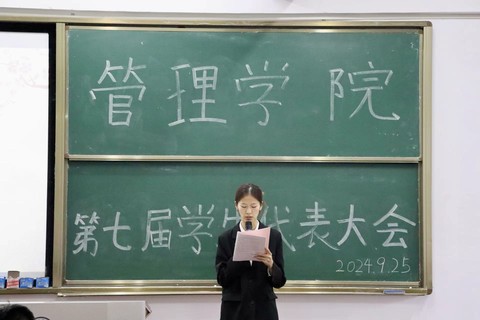 管理学院
第七届学生代表大会
2024.9.25